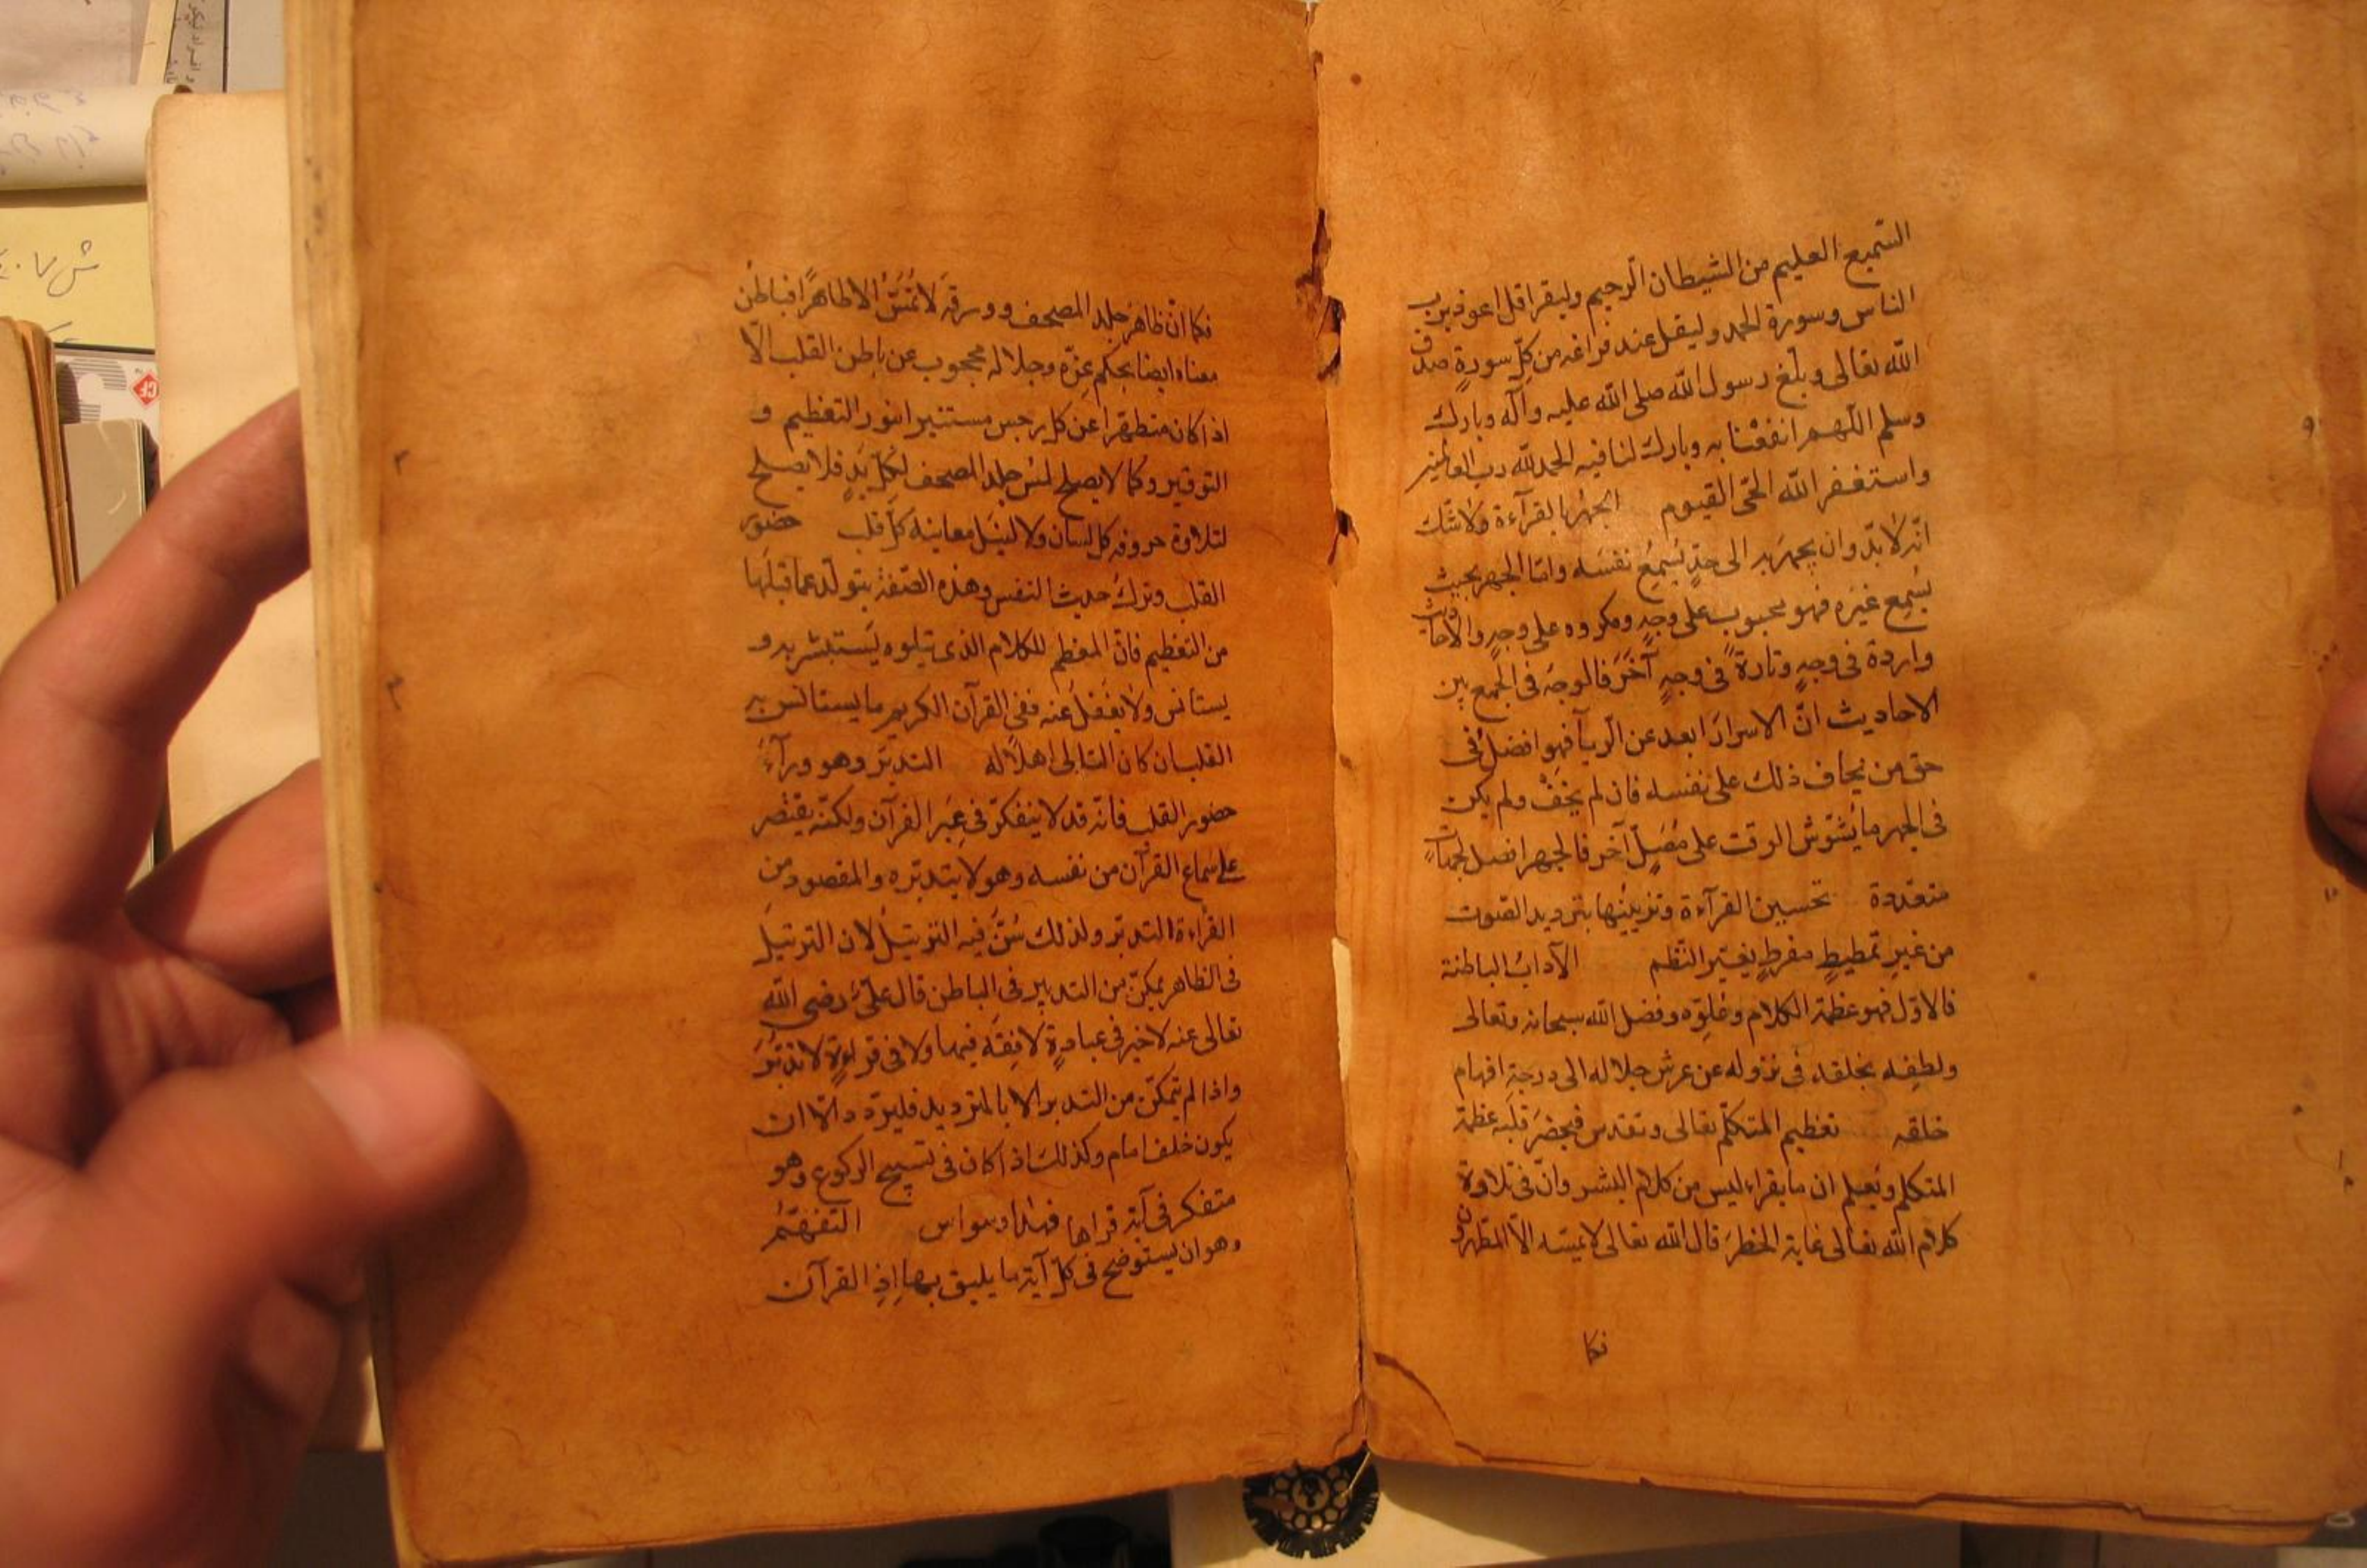 السّميع العليم من الشيطان الرجيم وليقرا قل اعوذ برب
الناس وسورة الحمد وليقل عند فراغه من كلّ سورةٍ صدق
الله تعالى وبلّغ رسول الله صلى الله عليه وآله وبارك
وسلم اللّهم انفعْنا به وبارك لنا فيه الحمد لله رب العالمين
واستغفر الله الحىّ القيوم الجهْر بالقرآءة ولا شك
انّه لا بدّ وان يجهر به الى حدّ يُسْمِعُ نفسَه وامّا الجهر بحيث
يُسْمِع غيرَه فهو محبوب على وجهٍ ومكروه على وجهٍ والاحاديث
واردة فى وجهٍ وتارةً فى وجهٍ آخَرَ فالوجهُ فى الجمع بين
الاحاديث انّ الاسرارَ ابعد عن الرياَ فهو افضلُ فى
حق من يخاف ذلك على نفسه فان لم يَخَفْ ولم يكن
فى الجهر ما يُشَوّش الوقت على مُصَلٍّ آخر فالجهر افضل لجهاتٍ
متعدّدة تحسين القرآءة وتزيينُها بترديد الصوت
من غيرِ تمطيطٍ مفرطٍ يغيّر النَّظم الآدابُ الباطنة
فالاوّل فهو عظمة الكلام وعُلوّه وفضل الله سبحانه وتعالى
ولطفِه بخلقه فى نزوله عن عرش جلاله الى درجةِ افهام
خلقه تعظيم المتكلّم تعالى وتقدس فيحضَر قلبَه عظمة
المتكلم ويَعلم ان ما يقراء ليس من كلام البشر وانّ فى تلاوة
كلام الله تعالى غاية الخطرَ قال الله تعالى لا يمسّه الّا المطّهرون
فكما
فكما انّ ظاهرَ جلد المصحف وورقه لا تُمَسُّ الا طاهرًا فباطنُ
معناه ايضا بحكم عِزّه وجلاله محجوب عن باطن القلب الّا
اذا كان متطهّرا عن كل رجس مستنيرا بنور التعظيم و
التوقير وكما لا يصلح لمسّ جلد المصحف لكلّ يَدٍ فلا يصلح
لتلاوة حروفه كل لسان ولا لنيل معانيه كلّ قلب حضور
القلب وتركُ حديث النفس وهذه الصّفة يتولّد عما قبلَها
من التعظيم فانّ المعظم للكلام الذى يتلوه يَستبشر به و
يستانس ولا يغفلُ عنه ففى القرآن الكريم ما يستانس به
القلب ان كان التالى اهلًا له التدبّر وهو ورآءَ
حضور القلب فانّه قد لا يتفكّر فى غير القرآن ولكنّه يقتصر
على سماع القرآن من نفسه وهو لا يتدبّره والمقصود من
القراءة التدبّر ولذلك سُنَّ فيه الترتيلُ لان الترتيل
فى الظاهر يمكّن من التدبير فى الباطن قال علىّ رضى الله
تعالى عنه لا خير فى عبادةٍ لا فِقْهَ فيها ولا فى قراءةٍ لا تدبّرَ
واذا لم يتمكّن من التدبر الا بالترديد فليردّد الّا ان
يكون خلف امام وكذلك اذا كان فى تسبيح الركوع وهو
متفكر فى آية قراها فهذا وسواس التفهّمُ
وهو ان يستوضح فى كلّ آية ما يليق بها اذِ القرآن